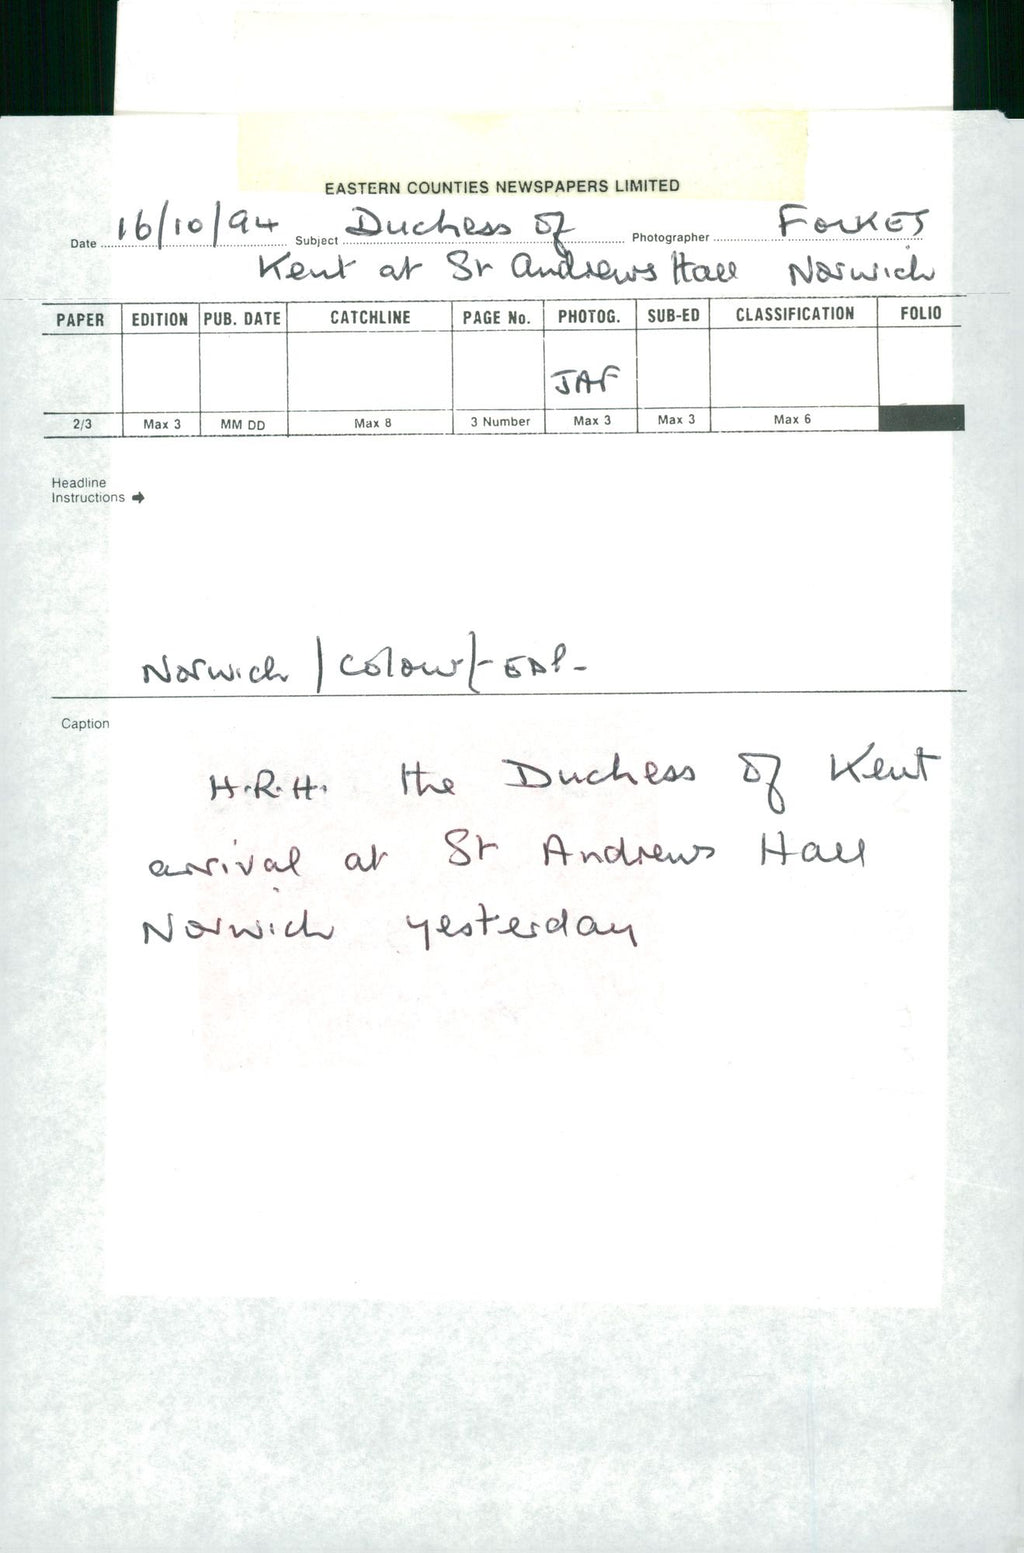 EASTERN COUNTIES NEWSPAPERS LIMITED
Date 16/10/94 Subject Duchess of Photographer FOLKES
Kent at St Andrews Hall Norwich
PAPER EDITION PUB. DATE CATCHLINE PAGE No. PHOTOG. SUB-ED CLASSIFICATION FOLIO
JAF
2/3 Max 3 MM DD Max 8 3 Number Max 3 Max 3 Max 6
Headline
Instructions ➔
Norwich / Colour / - EDP -
Caption
H.R.H. the Duchess of Kent
arrival at St Andrews Hall
Norwich yesterday